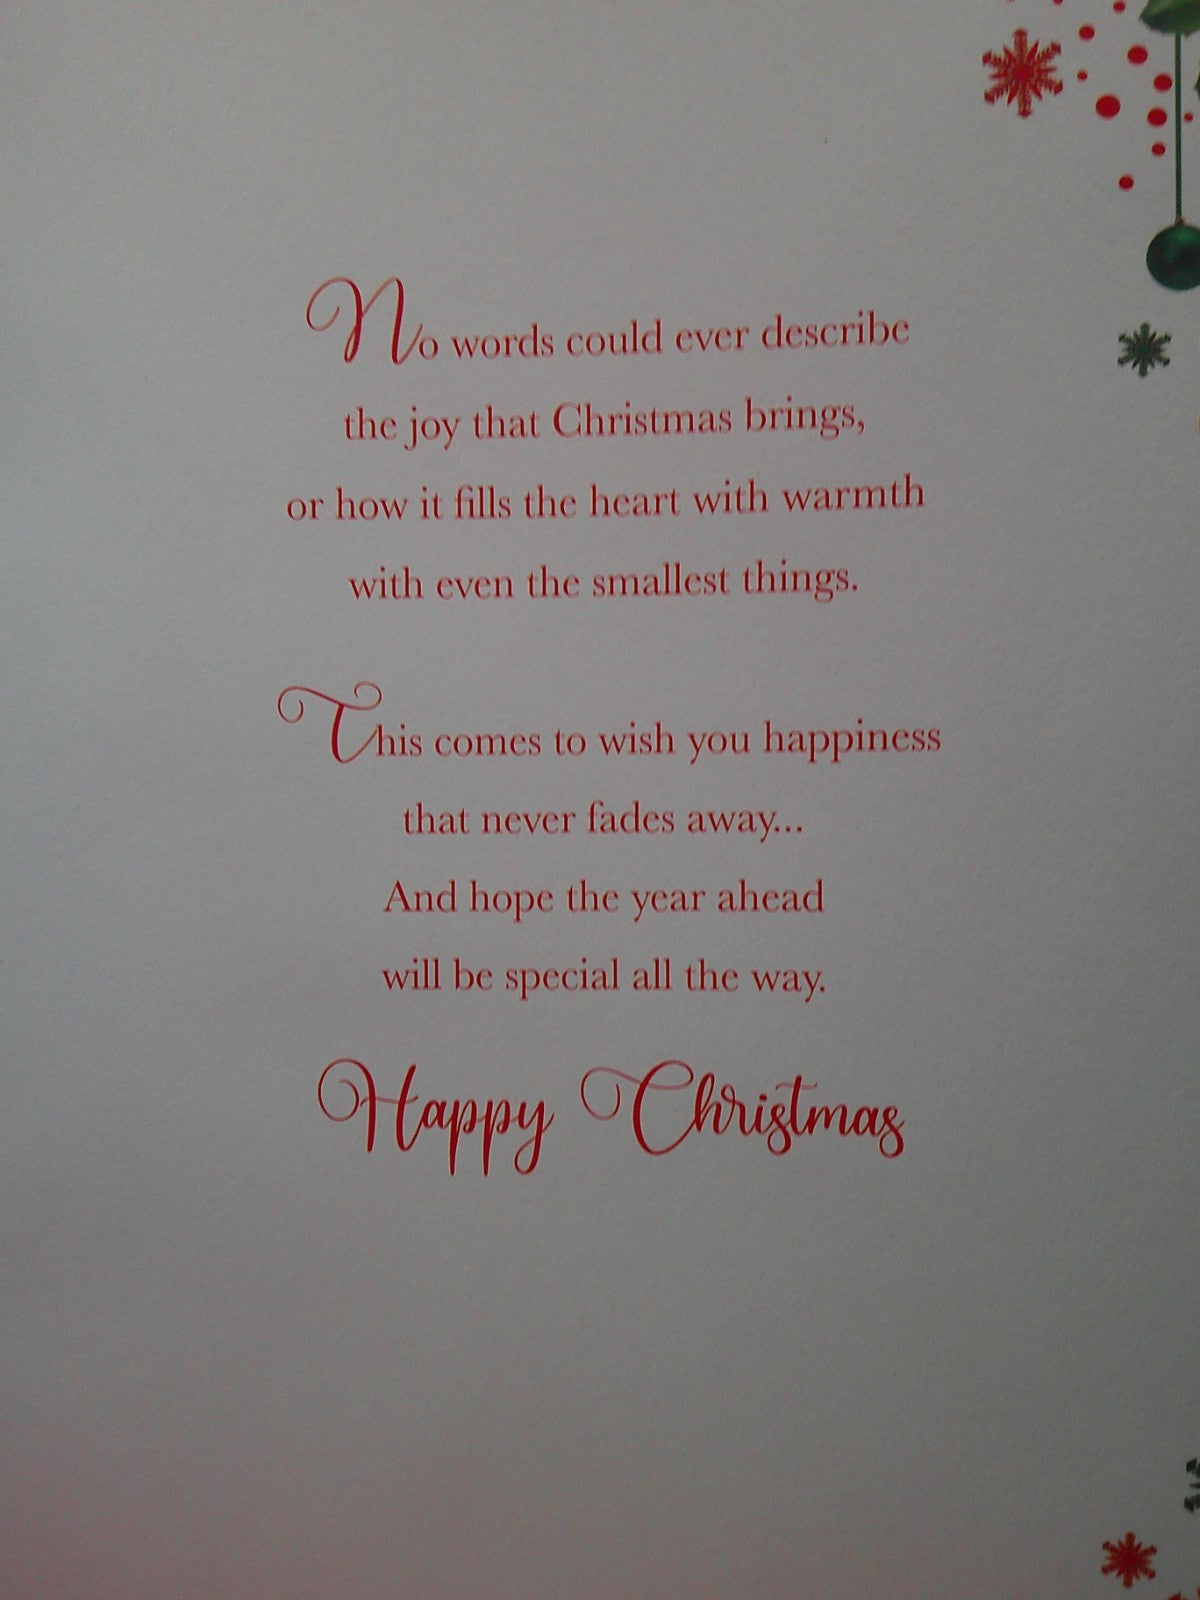 No words could ever describe
the joy that Christmas brings,
or how it fills the heart with warmth
with even the smallest things.
This comes to wish you happiness
that never fades away...
And hope the year ahead
will be special all the way.
Happy Christmas